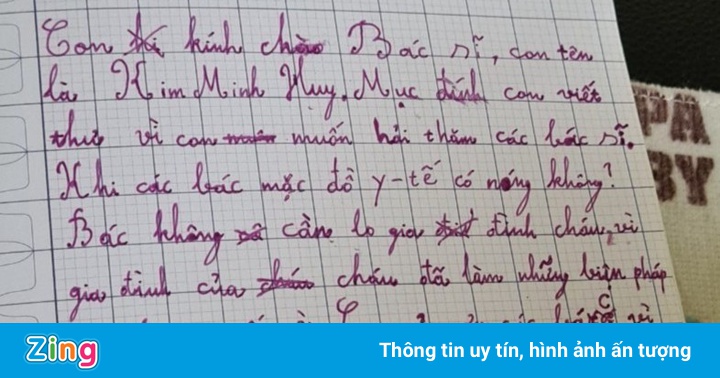 Con kính chào Bác sĩ, con tên
là Kim Minh Huy. Mục đính con viết
thư vì con muốn hỏi thăm các bác sĩ.
Khi các bác mặc đồ y-tế có nóng không?
Bác không cần lo gia đình cháu, vì
gia đình của cháu đã làm những biện pháp
PA
BY
Zing
Thông tin uy tín, hình ảnh ấn tượng